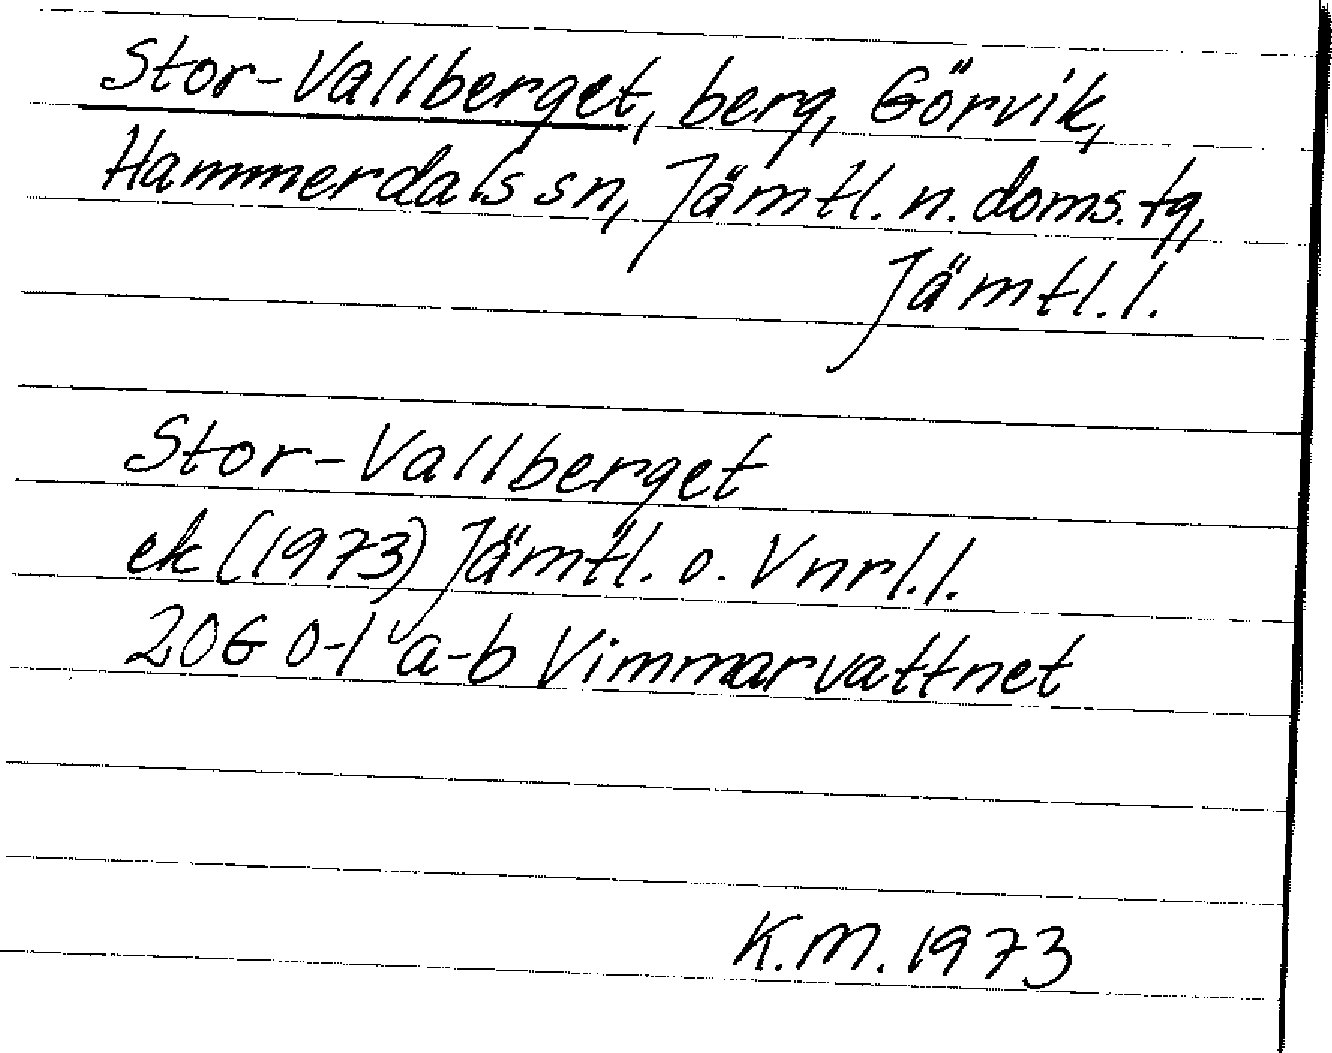 Stor-Vallberget, berg, Görvik,
Hammerdals sn, Jämtl. n. doms. tg,
Jämtl. l.
Stor-Vallberget
ek (1973) Jämtl. o. Vnrl. l.
20G 0-1 a-b Vimmarvattnet
K.M. 1973